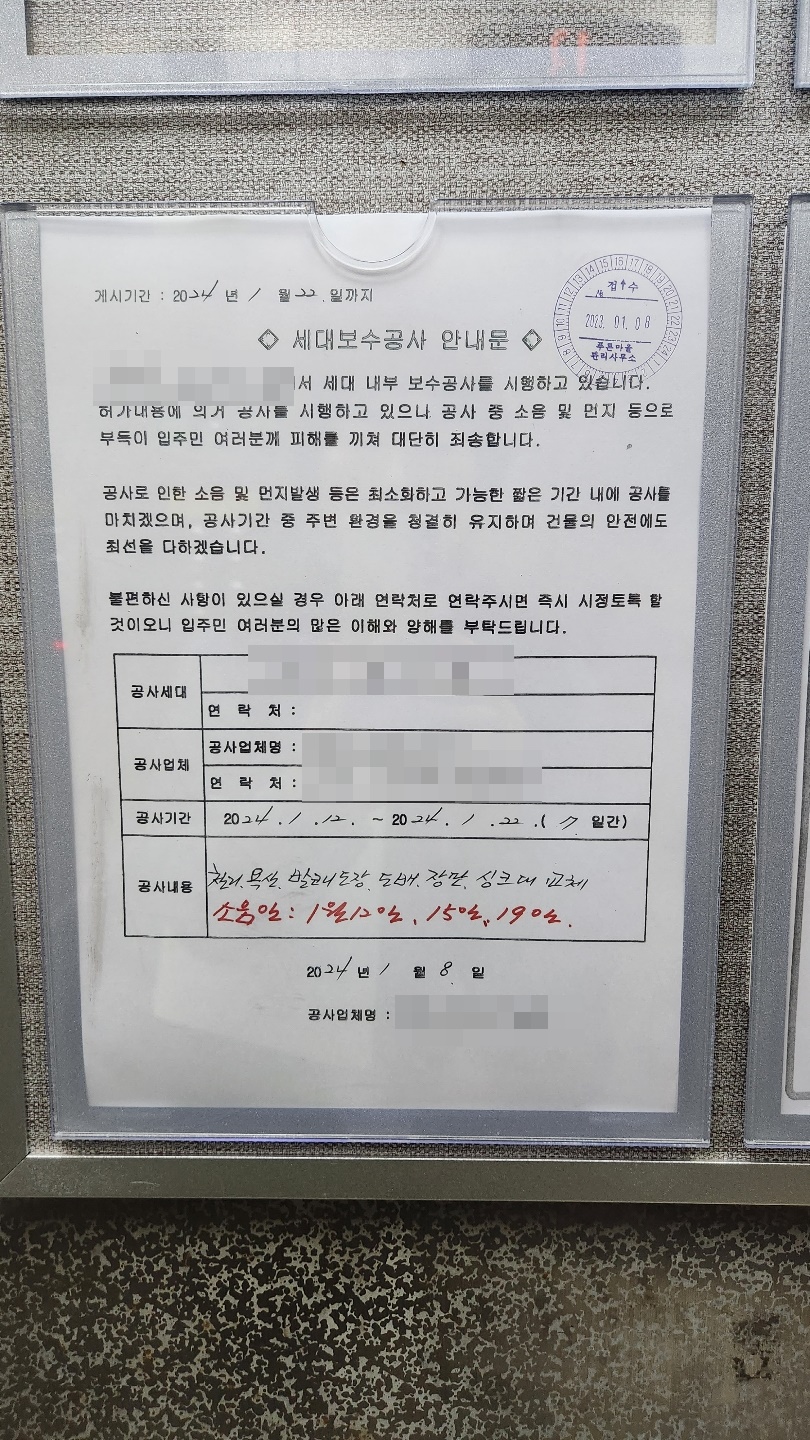 게시기간 : 2024 년 1 월 22 일까지
접수
2023. 01. 08
푸른마을
관리사무소
◇ 세대보수공사 안내문 ◇
서 세대 내부 보수공사를 시행하고 있습니다.
허가내용에 의거 공사를 시행하고 있으나 공사 중 소음 및 먼지 등으로
부득이 입주민 여러분께 피해를 끼쳐 대단히 죄송합니다.
공사로 인한 소음 및 먼지발생 등은 최소화하고 가능한 짧은 기간 내에 공사를
마치겠으며, 공사기간 중 주변 환경을 청결히 유지하며 건물의 안전에도
최선을 다하겠습니다.
불편하신 사항이 있으실 경우 아래 연락처로 연락주시면 즉시 시정토록 할
것이오니 입주민 여러분의 많은 이해와 양해를 부탁드립니다.
공사세대
연 락 처 :
공사업체
공사업체명 :
연 락 처 :
공사기간 2024. 1 .12. ~ 2024. 1 .22 .( 7 일간)
공사내용 철거. 욕실. 발코니도장. 도배. 장판. 싱크대 교체
소음일: 1월12일, 15일, 19일.
2024 년 1 월 8 일
공사업체명 :